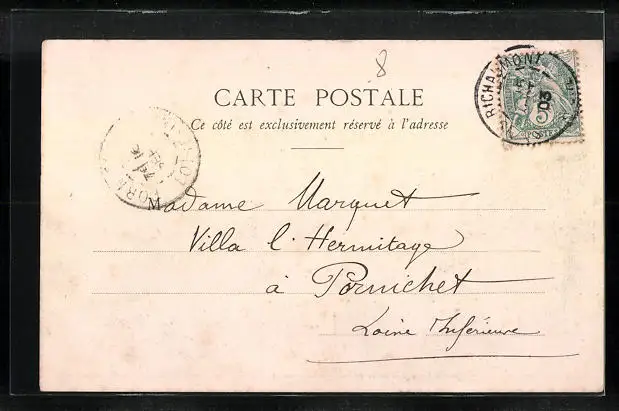 8
CARTE POSTALE
Ce côté est exclusivement réservé à l'adresse
RICHAUMONT
03
5
POSTES
Madame Marquet
Villa l'Hermitage
à Pornichet
Loire Inférieure